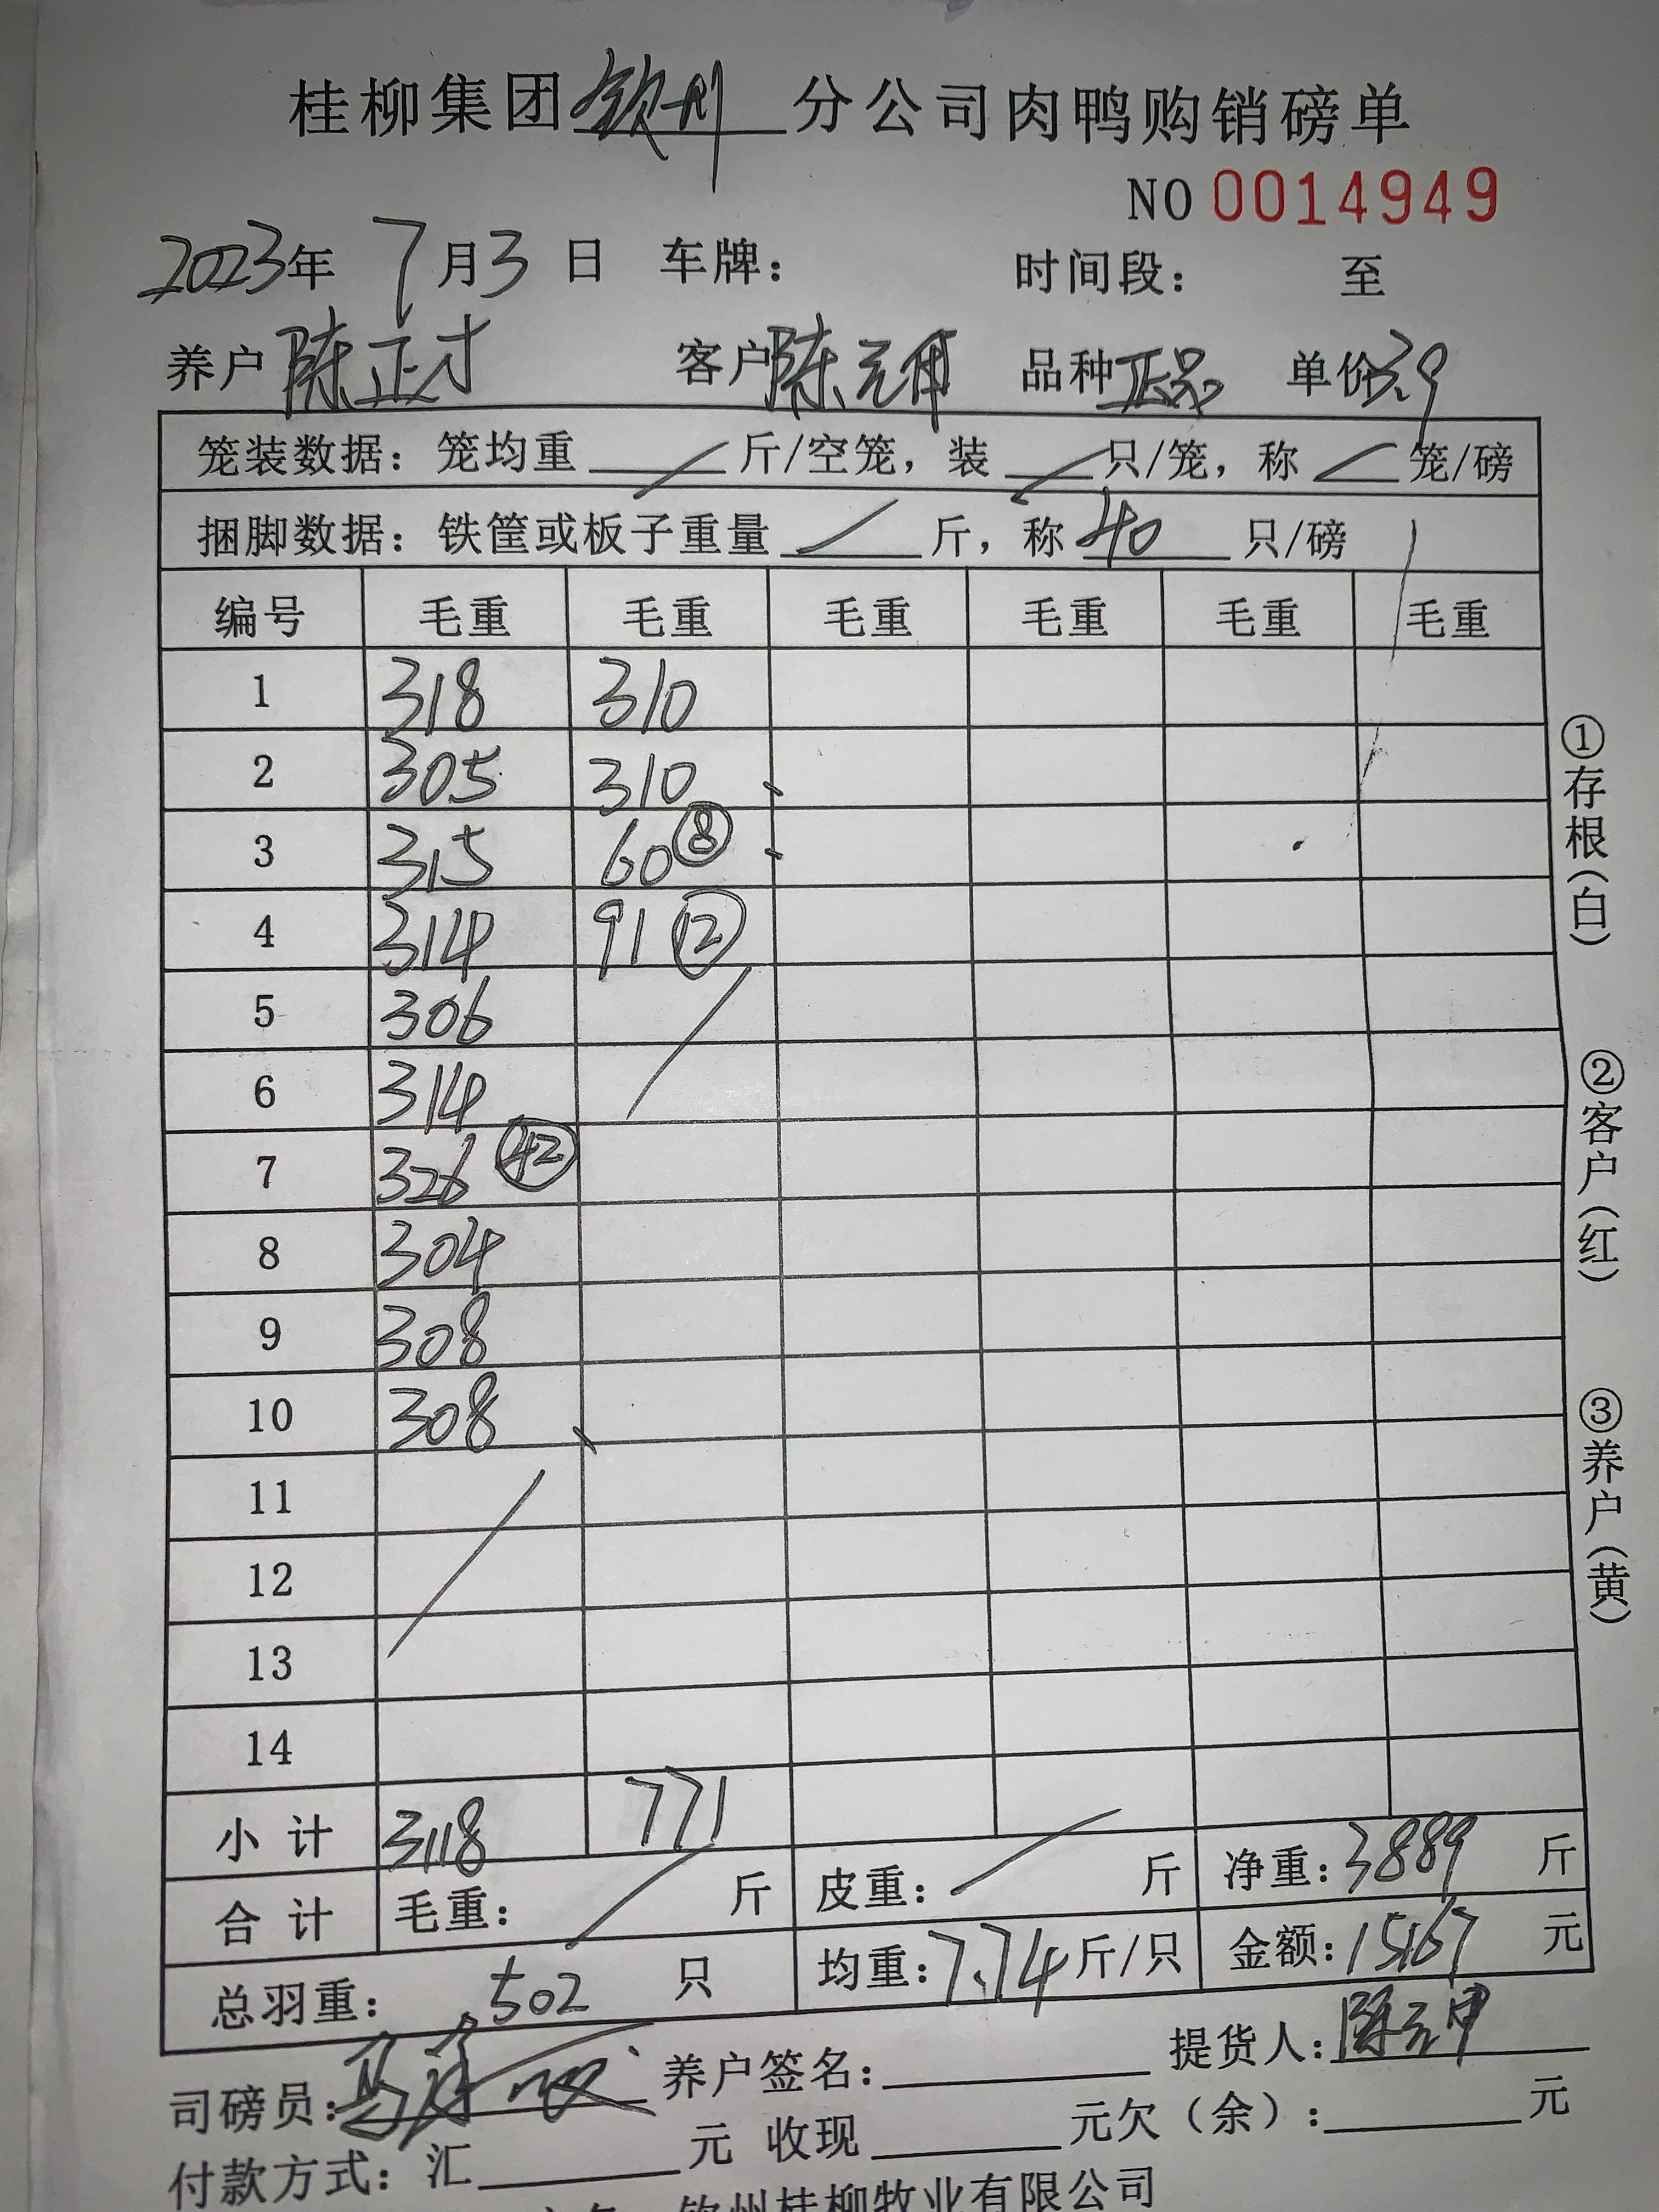 桂柳集团钦州分公司肉鸭购销磅单
NO 0014949
2023年 7月3日 车牌： 时间段： 至
养户 陈正才 客户 陈元甲 品种 正品 单价 3.9
笼装数据：笼均重 / 斤/空笼，装 / 只/笼，称 / 笼/磅
捆脚数据：铁筐或板子重量 / 斤，称 40 只/磅
编号 毛重 毛重 毛重 毛重 毛重 毛重
1 318 310
2 305 310
3 315 60 ⑧
4 314 91 ⑫
5 306
6 314
7 326 ㊷
8 304
9 308
10 308
11
12
13
14
小计 3118 771
合计 毛重： / 斤 皮重： / 斤 净重：3889 斤
总羽重： 502 只 均重：7.74 斤/只 金额：15167 元
司磅员： 养户签名： 提货人：陈元甲
付款方式：汇 元 收现 元欠（余）： 元
钦州桂柳牧业有限公司
①存根（白）
②客户（红）
③养户（黄）